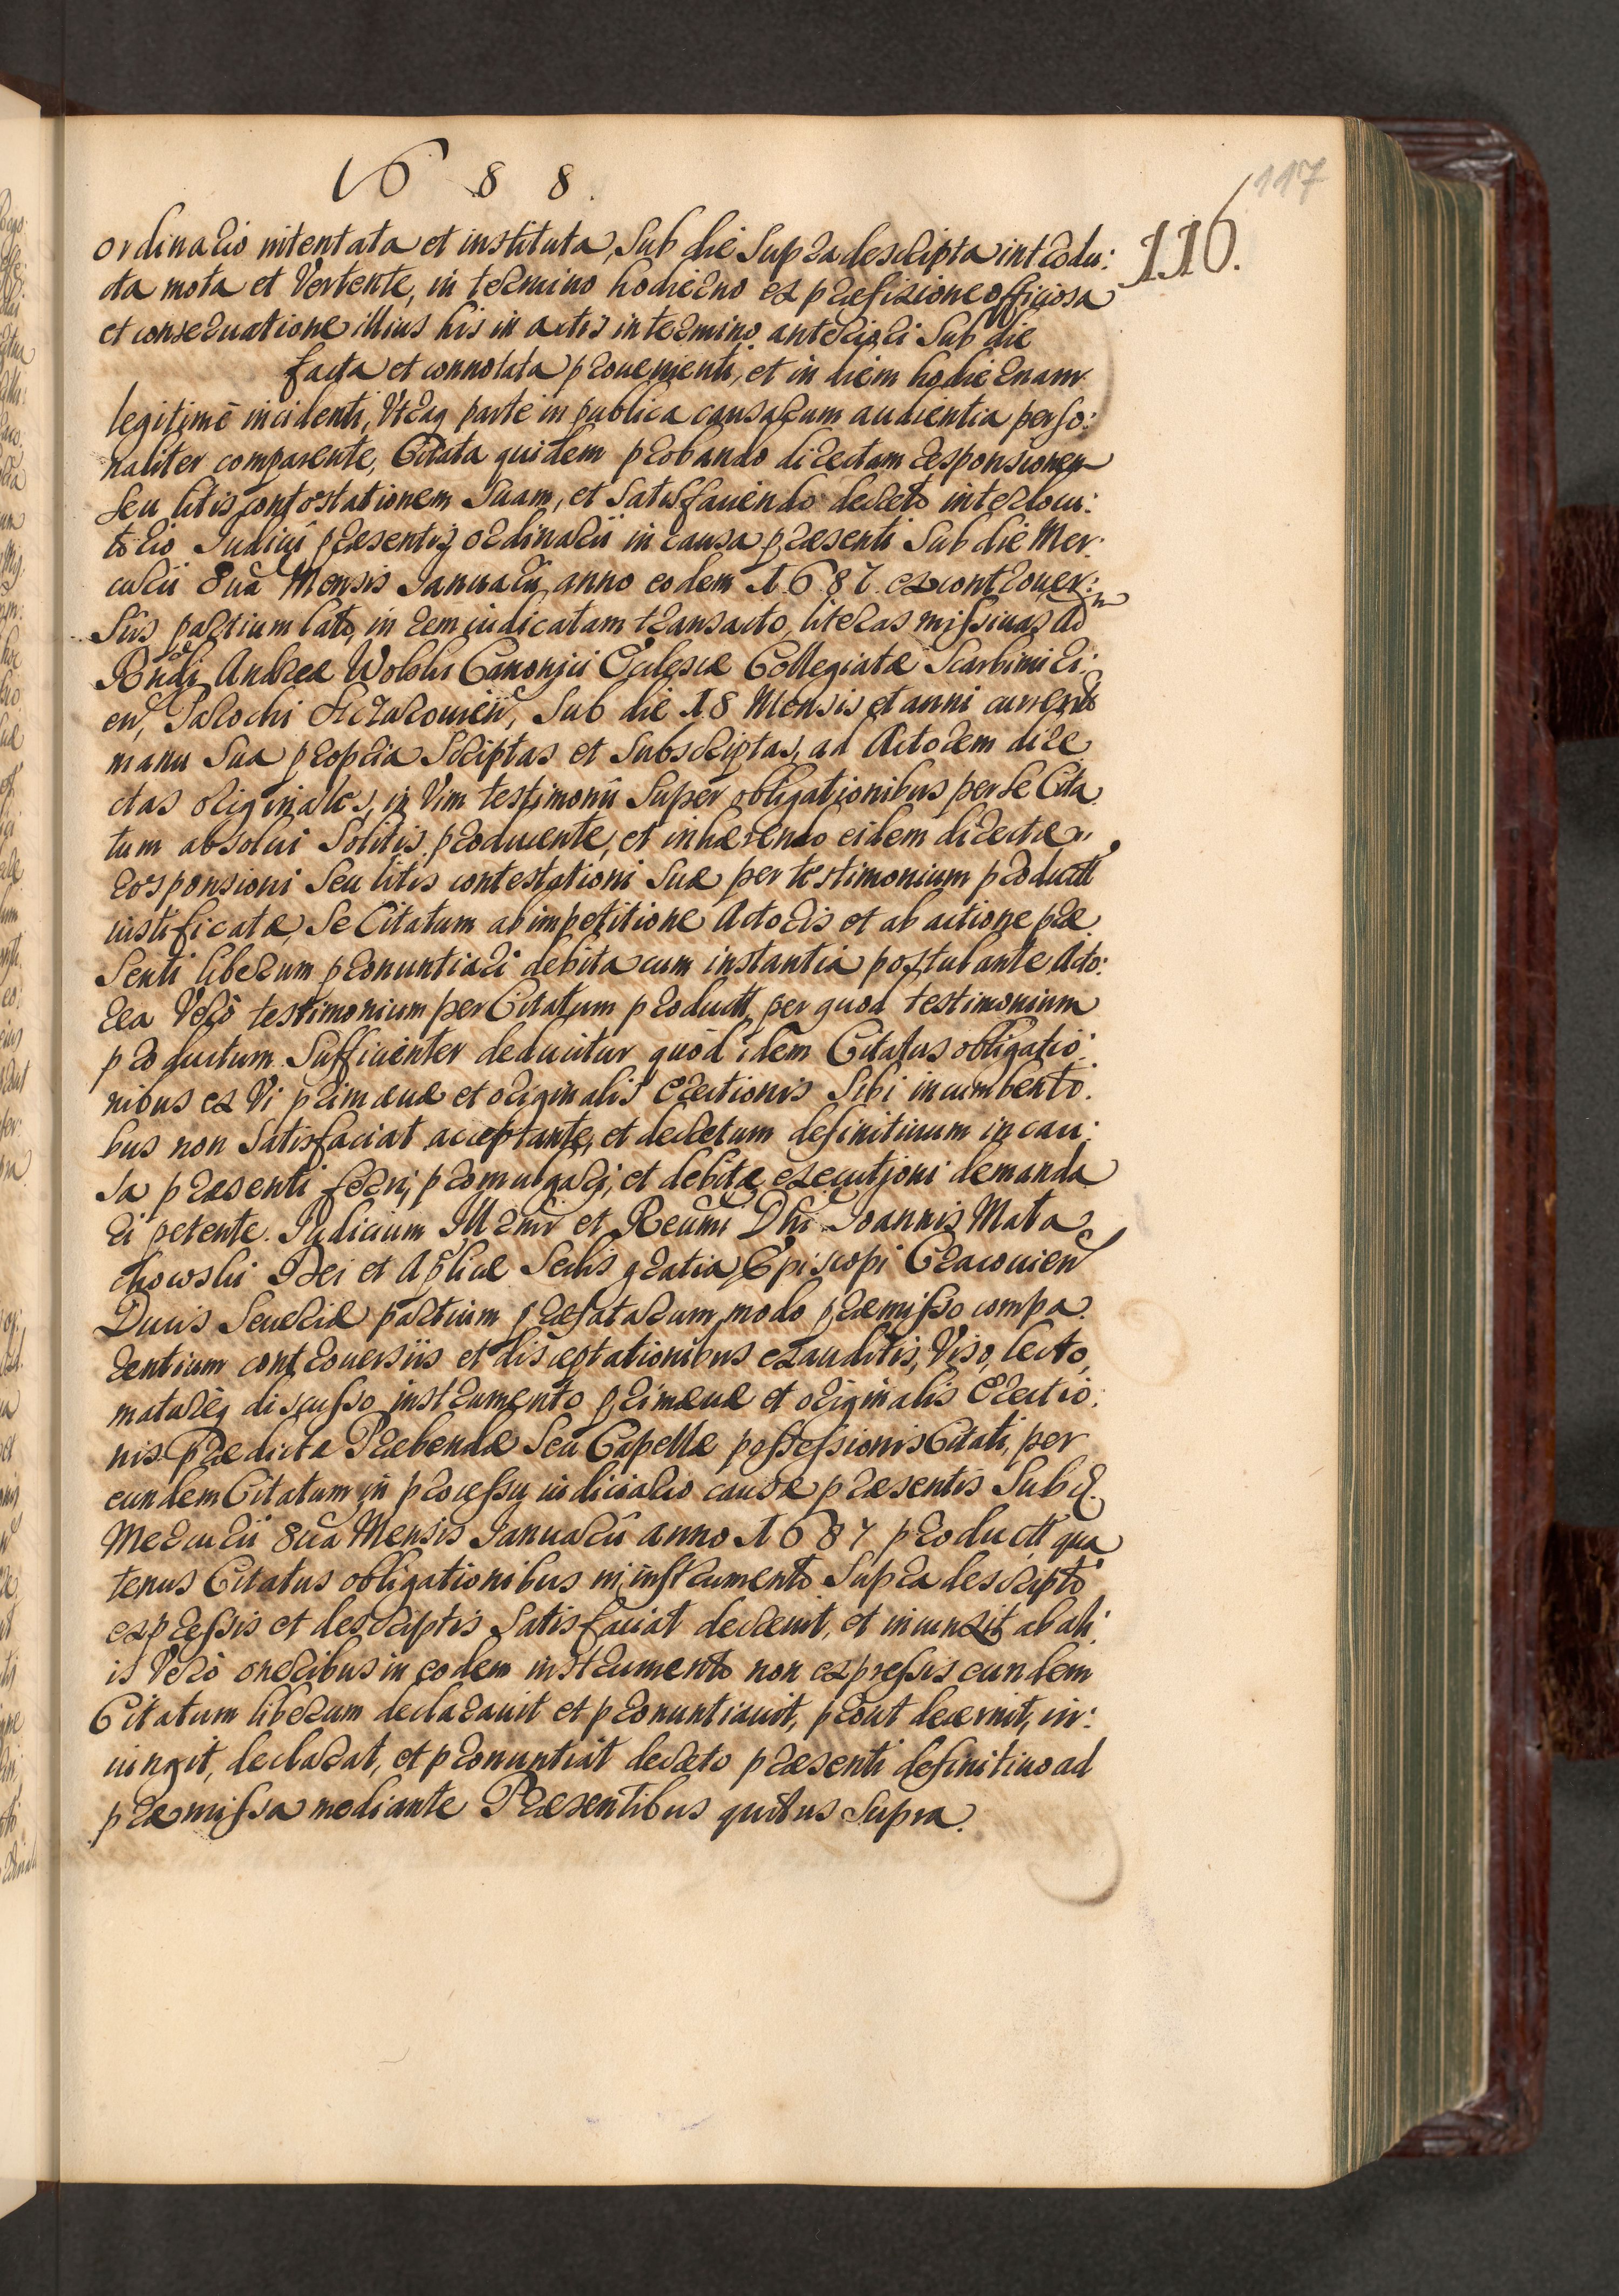 1688.
117
116.
ordinario intentata et instituta, Sub die Supra descripta introdu:
cta mota et Vertente, in termino hodierno ex præfixione officiosa
et conseruatione illius his in actis in termino anteriori Sub die
facta et connotata prouenienti, et in diem hodiernam
legitimè incidenti, Vtraq parte in publica causarum audientia perso:
naliter comparente, Citata quidem probando directam responsionem
Seu litis contestationem Suam, et Satisfaciendo decreto interlocu:
torio Judicii præsentis ordinarii in causa præsenti Sub die Mer:
curii 8ua Mensis Januarii anno eodem 1687. ex controuer:
Siis partium lato, in rem iudicatam transacto, literas missiuas Ad
Rndi Andreæ Wolski Canonici Ecclesiæ Collegiatæ Scarbimiri:
en, Parochi Sub die 18 Mensis et anni currentis
manu Sua propria Scriptas et Subscriptas, ad Actorem dire
ctas originales, in Vim testimonii Super obligationibus per Se Cita
tum absolui Solitis, producente, et inhærendo eidem directæ
responsioni Seu litis contestationi Suæ per testimonium productt
iustificatæ, Se Citatum ab impetitione Actoris et ab actione præ
Senti liberum pronuntiari debita cum instantia postulante, Acto:
rea Verò testimonium per Citatum productt, per quod testimonium
productum Sufficienter deducitur quòd idem Citatus obligatio:
nibus ex Vi primæuæ et originalis Erectionis Sibi incumbenti:
bus non Satisfaciat acceptante, et decretum definitiuum in cau:
Sa præsenti ferri, promulgari, et debitæ executioni demanda
ri petente. Judicium Illmi et Reumi Dni Joannis Mała
chowski Dei et Aplicæ Sedis gratia Episcopi Cracouien
Ducis Seueriæ partium præfatarum modo præmisso compa
rentium controuersiis et disceptationibus exauditis, Viso, lecto,
maturèq discusso instrumento primæuæ et originalis Erectio:
nis Prædictæ Præbendæ Seu Capellæ possessionis Citati, per
eundem Citatum in processu iudiciario causæ præsentis Sub d.
Mercurii 8ua Mensis Januarii anno 1687 productt qua
tenus Citatus obligationibus in instrumento Supra descripto
expressis et descriptis Satisfaciat decreuit, et iniunxit ab ali:
is Verò oneribus in eodem instrumento non expressis eundem
Citatum liberum declarauit et pronuntiauit, prout decernit, in:
iungit, declarat, et pronuntiat decreto præsenti definitiuo ad
præmissa mediante Præsentibus quibus Supra.